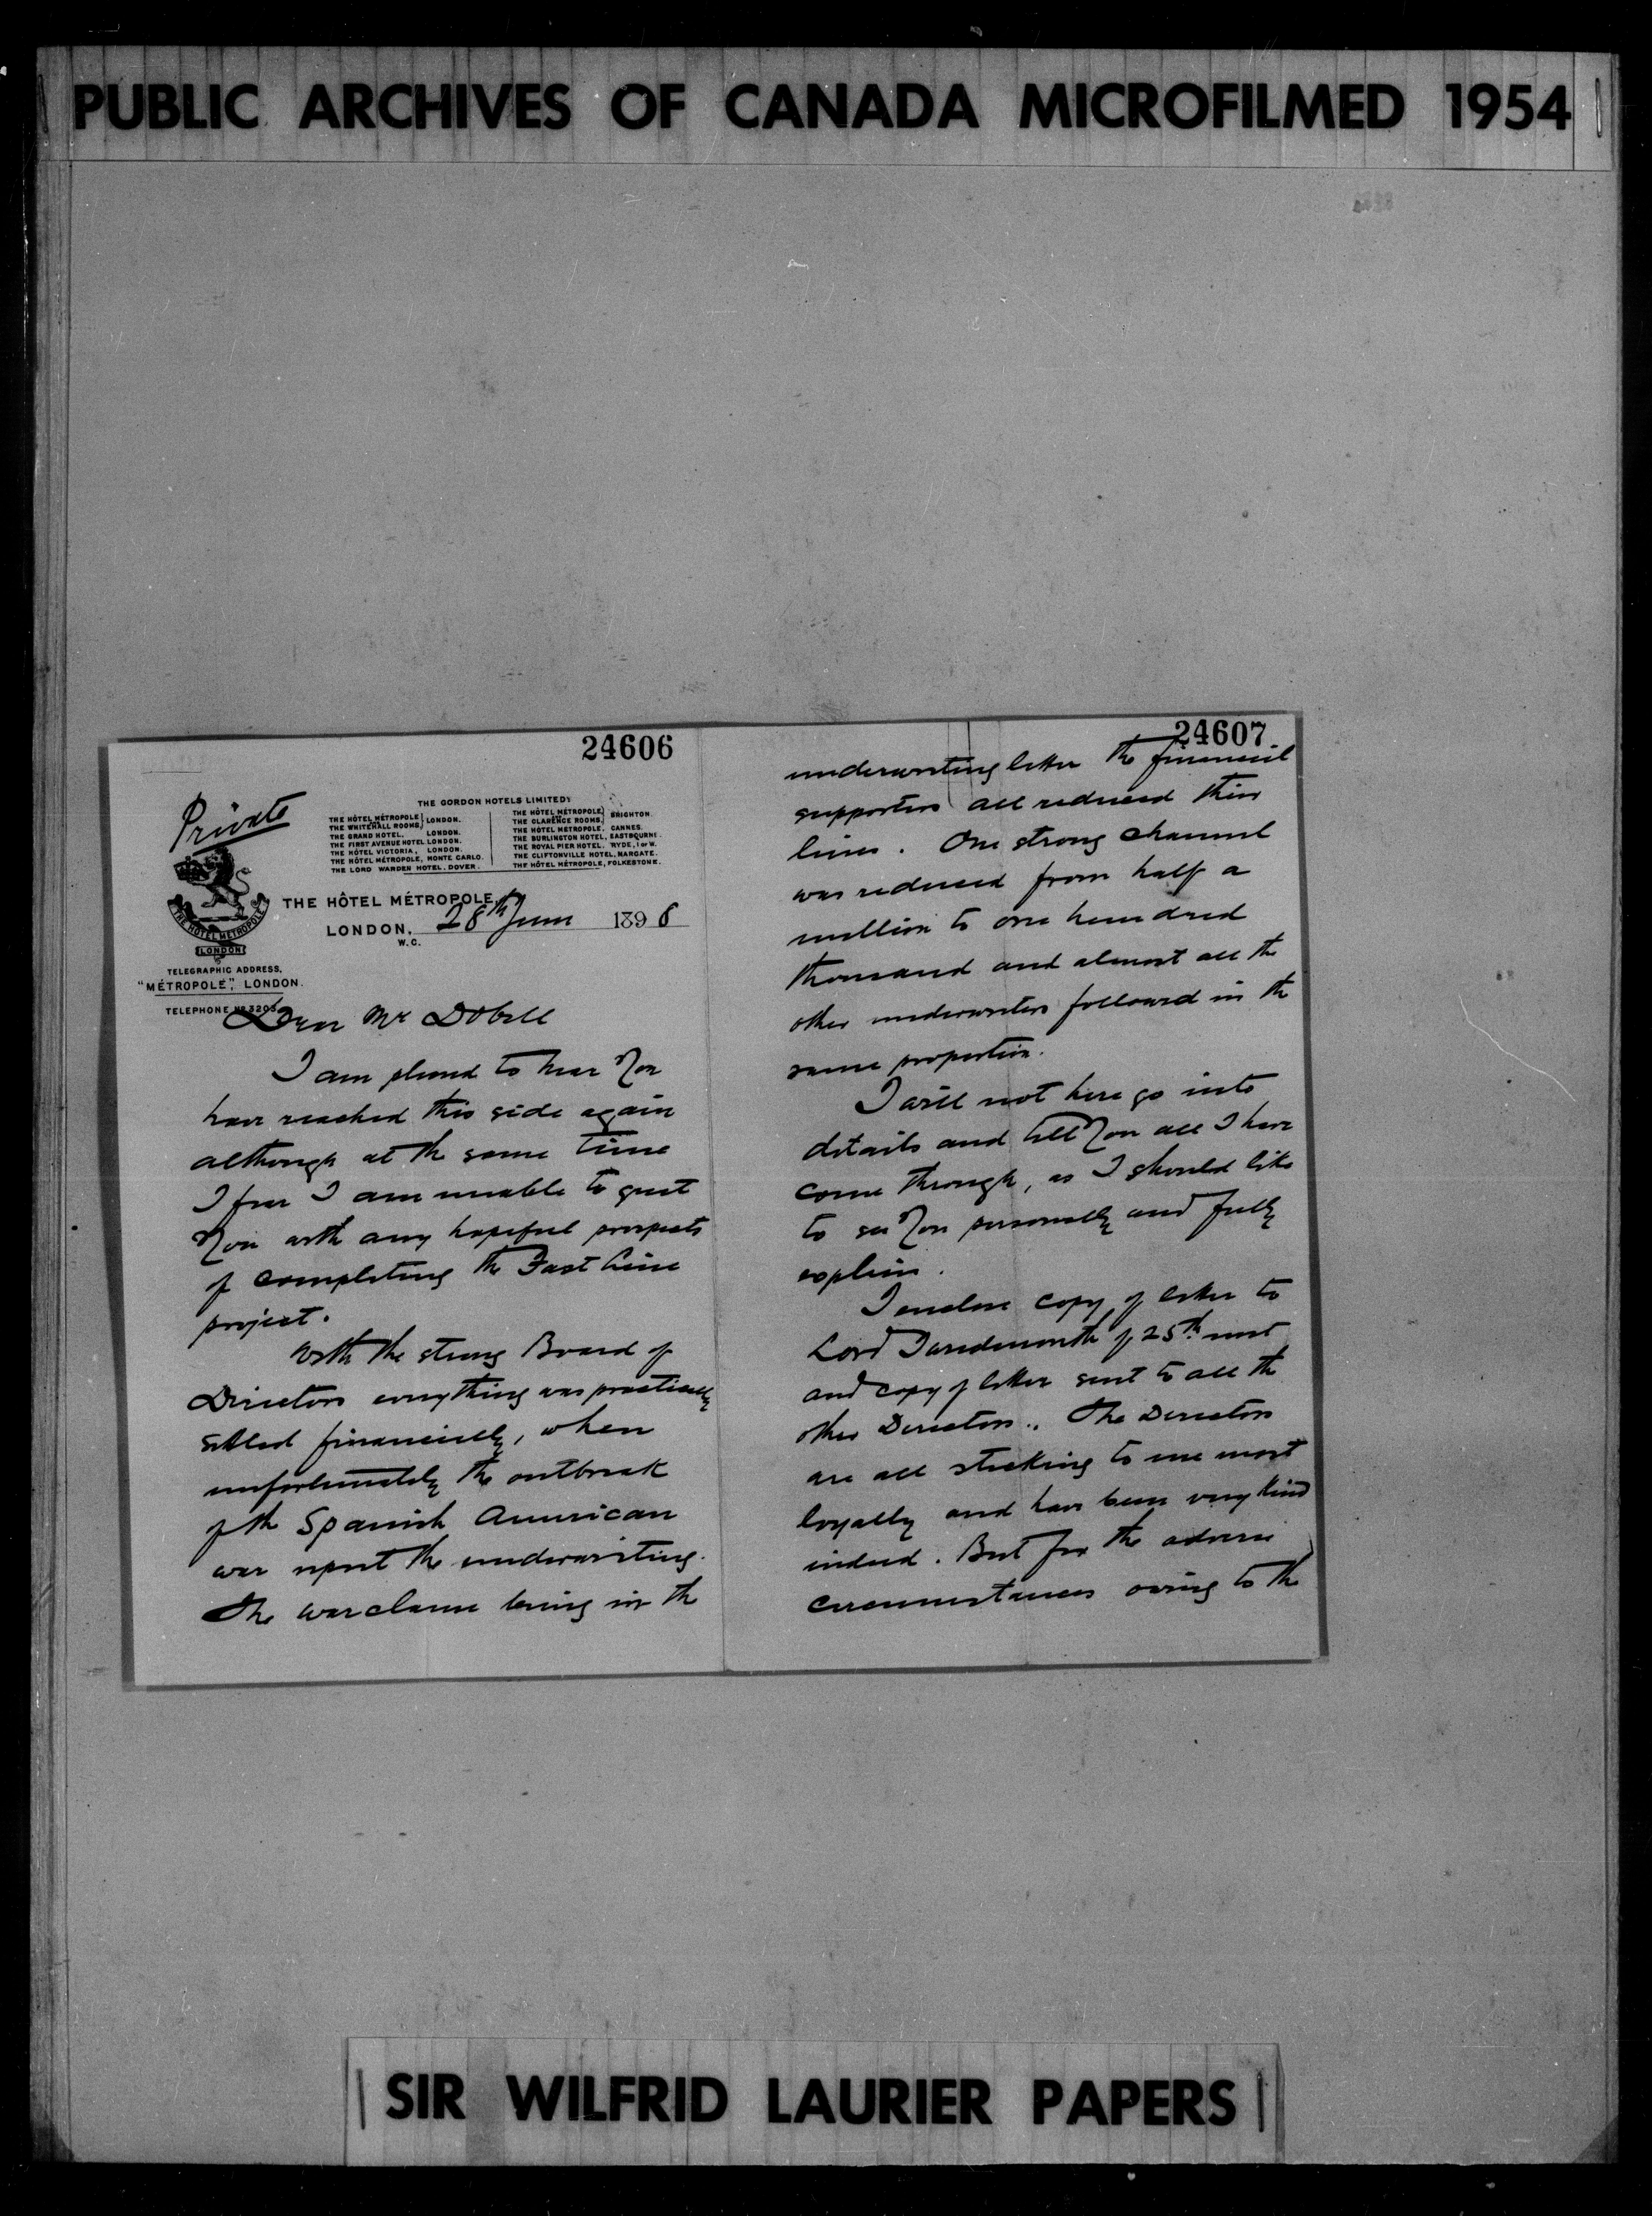 PUBLIC ARCHIVES OF CANADA MICROFILMED 1954
24606
Private
THE GORDON HOTELS LIMITED
THE HÔTEL MÉTROPOLE
THE WHITEHALL ROOMS } LONDON.
THE GRAND HOTEL, LONDON.
THE FIRST AVENUE HOTEL LONDON.
THE HÔTEL VICTORIA, LONDON.
THE HÔTEL MÉTROPOLE, MONTE CARLO.
THE LORD WARDEN HOTEL, DOVER.
THE HÔTEL MÉTROPOLE
THE CLARENCE ROOMS, } BRIGHTON.
THE HÔTEL MÉTROPOLE, CANNES.
THE BURLINGTON HOTEL, EASTBOURNE.
THE ROYAL PIER HOTEL, RYDE, I OF W.
THE CLIFTONVILLE HOTEL, MARGATE.
THE HÔTEL MÉTROPOLE, FOLKESTONE.
THE HÔTEL MÉTROPOLE
LONDON
THE HÔTEL MÉTROPOLE,
LONDON, 28th June 1898
W.C.
TELEGRAPHIC ADDRESS,
"MÉTROPOLE", LONDON.
TELEPHONE No 3203
Dear Mr Dobell
I am pleased to hear you
have reached this side again
although at the same time
I fear I am unable to greet
you with any hopeful prospects
of completing the Fast Line
project.
With the strong Board of
Directors everything was practically
settled financially, when
unfortunately the outbreak
of the Spanish American
war upset the underwriting.
The war clause being in the
24607
underwriting letter the financial
supporters all reduced their
lines. One strong channel
was reduced from half a
million to one hundred
thousand and almost all the
other underwriters followed in the
same proportion.
I will not here go into
details and tell you all I have
come through, as I should like
to see you personally and fully
explain.
I enclose copy of letter to
Lord of 25th inst
and copy of letter sent to all the
other Directors. The Directors
are all sticking to me most
loyally and have been very kind
indeed. But for the adverse
circumstances owing to the
SIR WILFRID LAURIER PAPERS